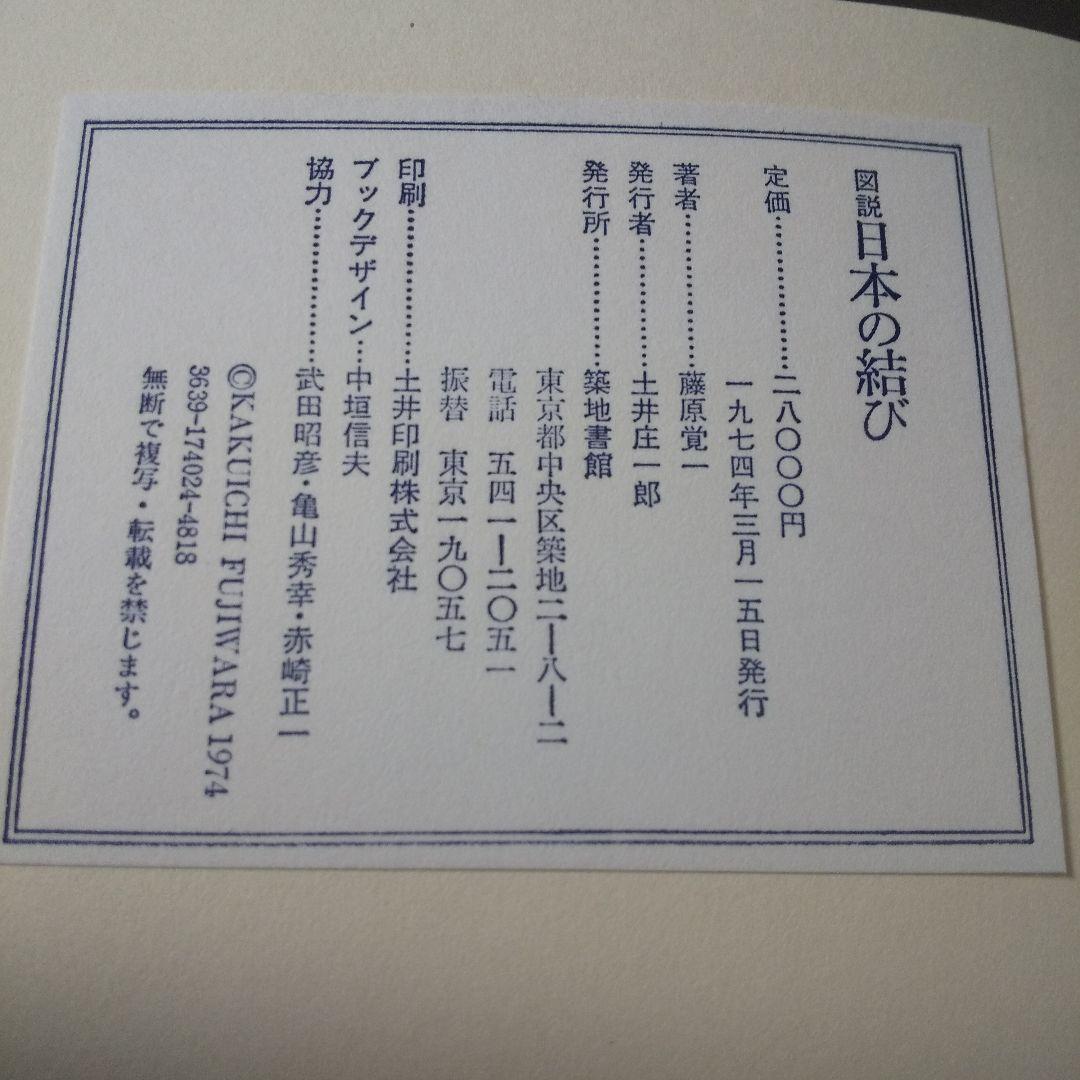 図説日本の結び
定価……………二八〇〇〇円
一九七四年三月一五日発行
著者……………藤原覚一
発行者…………土井庄一郎
発行所…………築地書館
東京都中央区築地二ー八ー二
電話 五四一ー二〇五一
振替 東京一九〇五七
印刷……………土井印刷株式会社
ブックデザイン…中垣信夫
協力……………武田昭彦・亀山秀幸・赤崎正一
©KAKUICHI FUJIWARA 1974
3639-174024-4818
無断で複写・転載を禁じます。